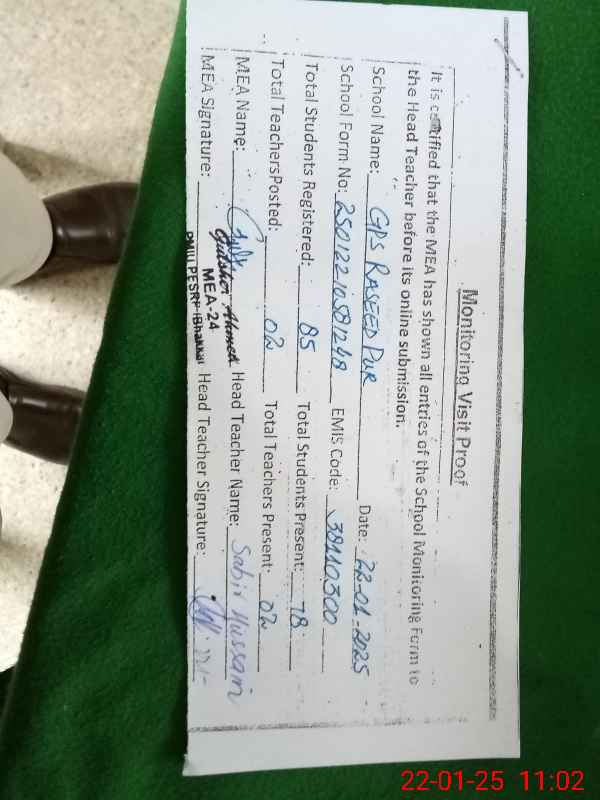 Monitoring Visit Proof
It is certified that the MEA has shown all entries of the School Monitoring Form to
the Head Teacher before its online submission.
School Name: GPS RASEED PUR Date: 22-01-2025
School Form No: 25012210581248 EMIS Code: 38110300
Total Students Registered: 85 Total Students Present: 78
Total TeachersPosted: 02 Total Teachers Present: 02
MEA Name: Gulsher Ahmed Head Teacher Name: Sabir Hussain
MEA Signature: MEA-24 Head Teacher Signature:
PMIU PESRP (Bhakkar)
22-01-25 11:02